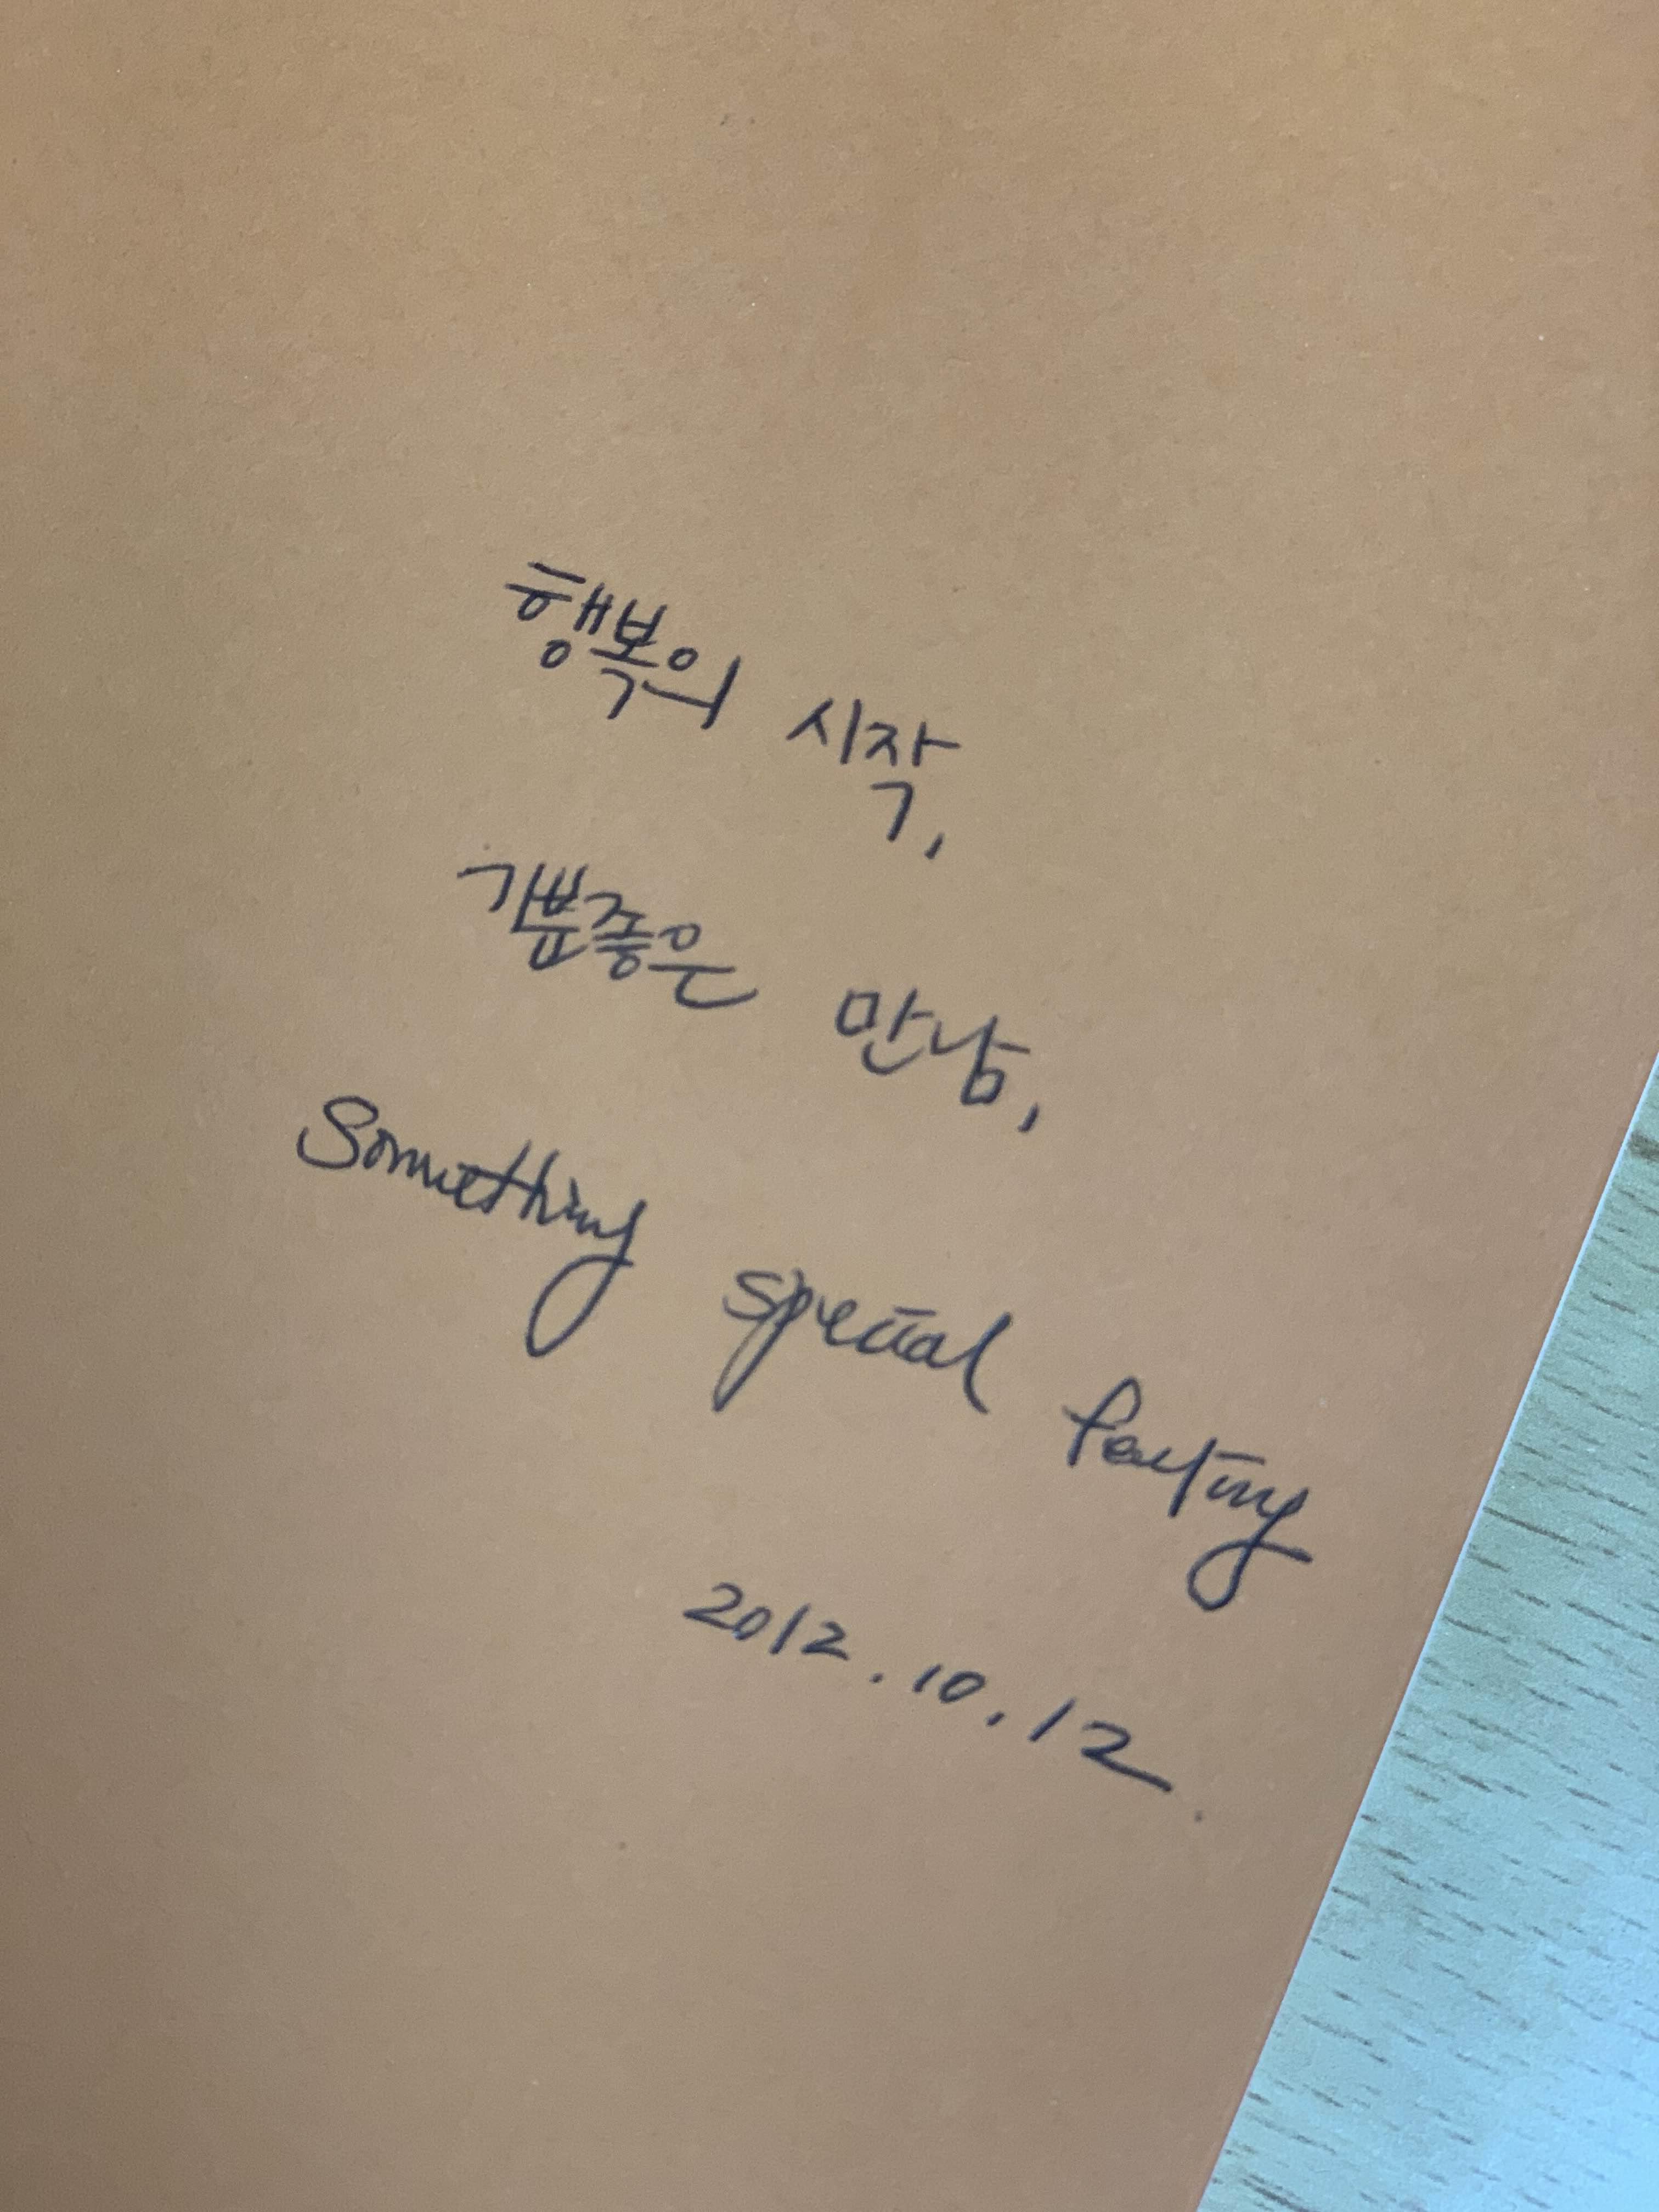 행복의 시작,
기분좋은 만남,
Something special
2012.10.12.